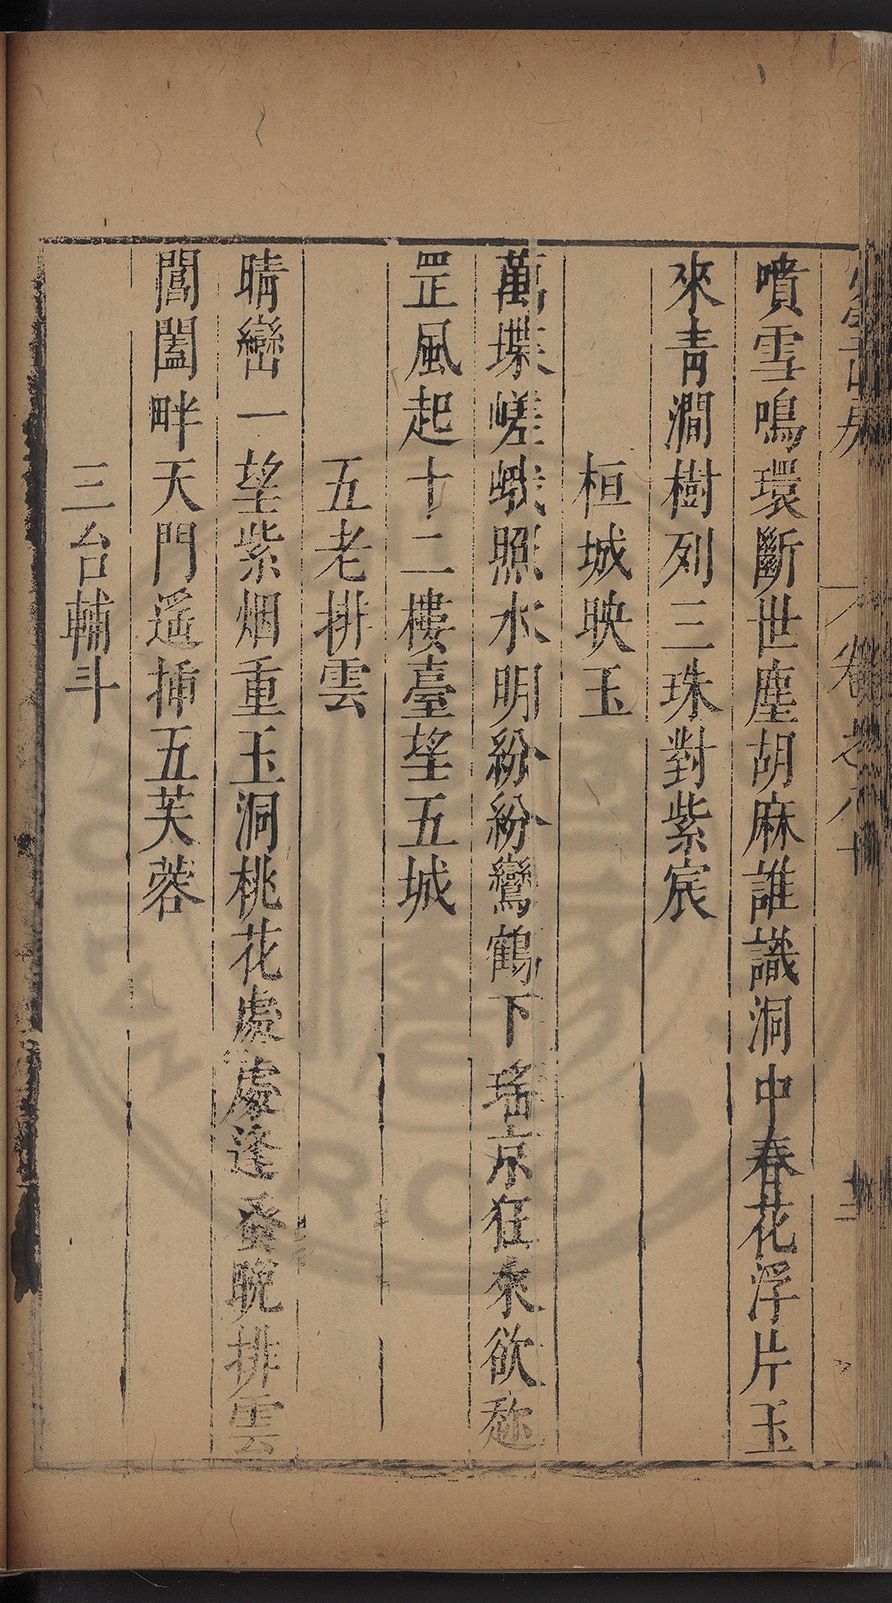 卷之八十
噴雪鳴環斷世塵胡麻誰識洞中春花浮片玉
來青澗樹列三珠對紫宸
桓城映玉
萬堞嵯峨照水明紛紛鸞鶴下瑤京狂來欲趂
罡風起十二樓臺望五城
五老排雲
晴巒一望紫烟重玉洞桃花處處逢晚排雲
閶闔畔天門遥揷五芙蓉
三台輔斗